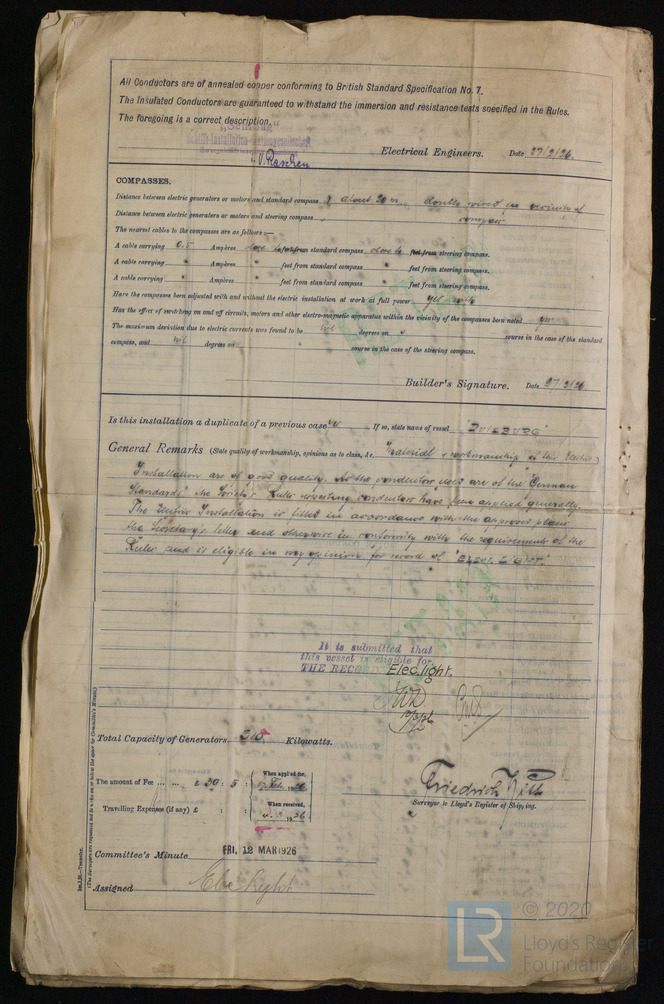 All Conductors are of annealed copper conforming to British Standard Specification No. 7.
The Insulated Conductors are guaranteed to withstand the immersion and resistance tests specified in the Rules.
The foregoing is a correct description.
Electrical Engineers. Date 27/2/26.
COMPASSES.
Distance between electric generators or motors and standard compass about 20 m double wired in vicinity of
Distance between electric generators or motors and steering compass compass
The nearest cables to the compasses are as follows:—
A cable carrying 0.5 Ampères close to feet from standard compass close to feet from steering compass.
A cable carrying " Ampères " feet from standard compass " feet from steering compass.
A cable carrying " Ampères " feet from standard compass " feet from steering compass.
Have the compasses been adjusted with and without the electric installation at work at full power yes
Has the effect of switching on and off circuits, motors and other electro-magnetic apparatus within the vicinity of the compasses been noted yes
The maximum deviation due to electric currents was found to be nil degrees on " course in the case of the standard
compass, and nil degrees on course in the case of the steering compass.
Builder's Signature. Date 27/2/26
Is this installation a duplicate of a previous case If so, state name of vessel
General Remarks (State quality of workmanship, opinions as to class, &c. Material & workmanship of this Electric)
Installation are of good quality. As the conductors used are of the "German
Standards" the Society's Rules respecting conductors have been applied generally.
The Electric Installation is fitted in accordance with the approved plans,
the Secretary's letter and otherwise in conformity with the requirements of the
Rules and is eligible in my opinion for record of "ELECT. LIGHT."
It is submitted that
this vessel is eligible for
THE RECORD Elec.light.
Total Capacity of Generators Kilowatts.
The amount of Fee ... ... £ 39 : 5 : When applied for, 19 26
Travelling Expenses (if any) £ : : When received, 19 26
Friedrich
Surveyor to Lloyd's Register of Shipping.
Committee's Minute FRI, 12 MAR 1926
Assigned Elec Light
LR
© 2020
Lloyd's Register
Foundation